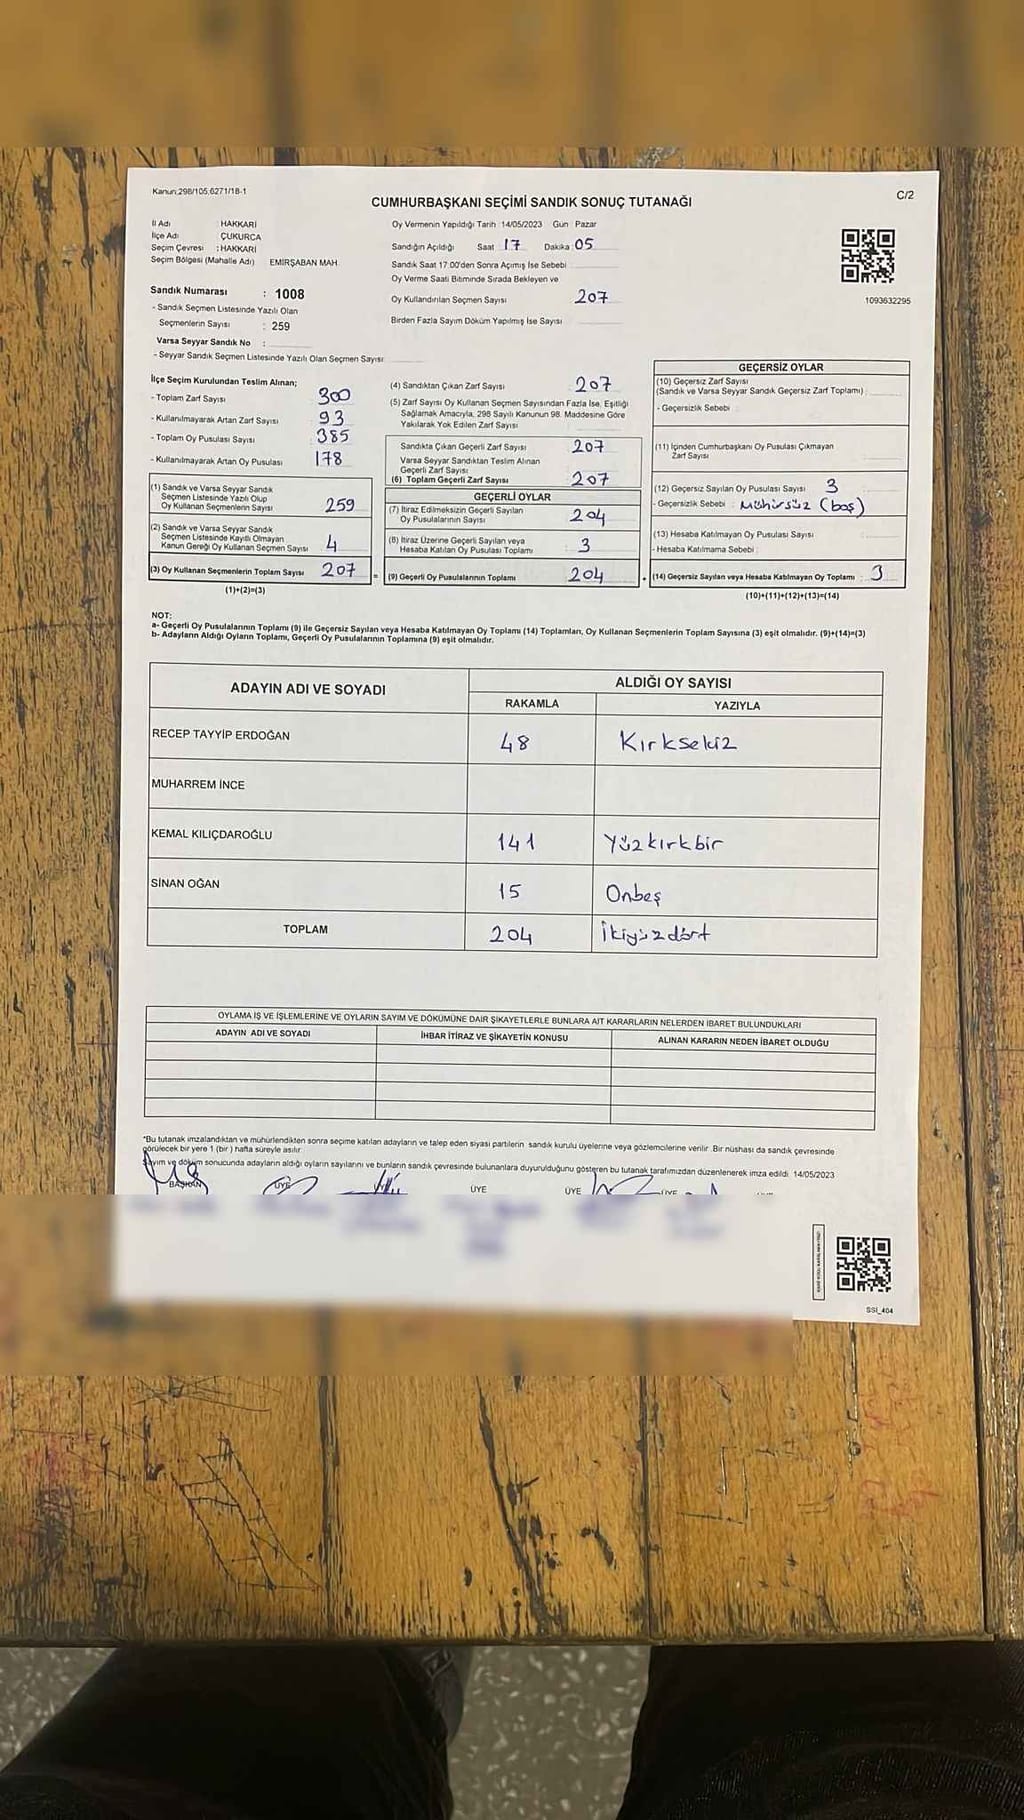 Kanun:298/105;6271/18-1
C/2
CUMHURBAŞKANI SEÇİMİ SANDIK SONUÇ TUTANAĞI
İl Adı : HAKKARİ
İlçe Adı : ÇUKURCA
Seçim Çevresi : HAKKARİ
Seçim Bölgesi (Mahalle Adı) EMİRŞABAN MAH.
Sandık Numarası : 1008
- Sandık Seçmen Listesinde Yazılı Olan
Seçmenlerin Sayısı : 259
Varsa Seyyar Sandık No :
- Seyyar Sandık Seçmen Listesinde Yazılı Olan Seçmen Sayısı
Oy Vermenin Yapıldığı Tarih :14/05/2023 Gün : Pazar
Sandığın Açıldığı Saat 17 Dakika 05
Sandık Saat 17.00'den Sonra Açımış İse Sebebi
Oy Verme Saati Bitiminde Sırada Bekleyen ve
Oy Kullandırılan Seçmen Sayısı 207
Birden Fazla Sayım Döküm Yapılmış İse Sayısı
1093632295
İlçe Seçim Kurulundan Teslim Alınan;
- Toplam Zarf Sayısı 300
- Kullanılmayarak Artan Zarf Sayısı 93
- Toplam Oy Pusulası Sayısı 385
- Kullanılmayarak Artan Oy Pusulası 178
(1) Sandık ve Varsa Seyyar Sandık
Seçmen Listesinde Yazılı Olup
Oy Kullanan Seçmenlerin Sayısı 259
(2) Sandık ve Varsa Seyyar Sandık
Seçmen Listesinde Kayıtlı Olmayan
Kanun Gereği Oy Kullanan Seçmen Sayısı 4
(3) Oy Kullanan Seçmenlerin Toplam Sayısı 207
(1)+(2)=(3)
(4) Sandıktan Çıkan Zarf Sayısı 207
(5) Zarf Sayısı Oy Kullanan Seçmen Sayısından Fazla İse, Eşitliği
Sağlamak Amacıyla, 298 Sayılı Kanunun 98. Maddesine Göre
Yakılarak Yok Edilen Zarf Sayısı
Sandıkta Çıkan Geçerli Zarf Sayısı 207
Varsa Seyyar Sandıktan Teslim Alınan
Geçerli Zarf Sayısı
(6) Toplam Geçerli Zarf Sayısı 207
GEÇERLİ OYLAR
(7) İtiraz Edilmeksizin Geçerli Sayılan
Oy Pusulalarının Sayısı 204
(8) İtiraz Üzerine Geçerli Sayılan veya
Hesaba Katılan Oy Pusulası Toplamı 3
= (9) Geçerli Oy Pusulalarının Toplamı 204
GEÇERSİZ OYLAR
(10) Geçersiz Zarf Sayısı
(Sandık ve Varsa Seyyar Sandık Geçersiz Zarf Toplamı)
- Geçersizlik Sebebi
(11) İçinden Cumhurbaşkanı Oy Pusulası Çıkmayan
Zarf Sayısı
(12) Geçersiz Sayılan Oy Pusulası Sayısı 3
- Geçersizlik Sebebi : Mühürsüz (boş)
(13) Hesaba Katılmayan Oy Pusulası Sayısı
- Hesaba Katılmama Sebebi :
+ (14) Geçersiz Sayılan veya Hesaba Katılmayan Oy Toplamı : 3
(10)+(11)+(12)+(13)=(14)
NOT:
a- Geçerli Oy Pusulalarının Toplamı (9) ile Geçersiz Sayılan veya Hesaba Katılmayan Oy Toplamı (14) Toplamları, Oy Kullanan Seçmenlerin Toplam Sayısına (3) eşit olmalıdır. (9)+(14)=(3)
b- Adayların Aldığı Oyların Toplamı, Geçerli Oy Pusulalarının Toplamına (9) eşit olmalıdır.
ADAYIN ADI VE SOYADI ALDIĞI OY SAYISI
RAKAMLA YAZIYLA
RECEP TAYYİP ERDOĞAN 48 Kırksekiz
MUHARREM İNCE
KEMAL KILIÇDAROĞLU 141 Yüzkırkbir
SİNAN OĞAN 15 Onbeş
TOPLAM 204 İkiyüzdört
OYLAMA İŞ VE İŞLEMLERİNE VE OYLARIN SAYIM VE DÖKÜMÜNE DAİR ŞİKAYETLERLE BUNLARA AİT KARARLARIN NELERDEN İBARET BULUNDUKLARI
ADAYIN ADI VE SOYADI İHBAR İTİRAZ VE ŞİKAYETİN KONUSU ALINAN KARARIN NEDEN İBARET OLDUĞU
*Bu tutanak imzalandıktan ve mühürlendikten sonra seçime katılan adayların ve talep eden siyasi partilerin sandık kurulu üyelerine veya gözlemcilerine verilir. Bir nüshası da sandık çevresinde
görülecek bir yere 1 (bir) hafta süreyle asılır.
Sayım ve döküm sonucunda adayların aldığı oyların sayılarını ve bunların sandık çevresinde bulunanlara duyurulduğunu gösteren bu tutanak tarafımızdan düzenlenerek imza edildi. 14/05/2023
BAŞKAN ÜYE ÜYE ÜYE ÜYE ÜYE
SSI_404